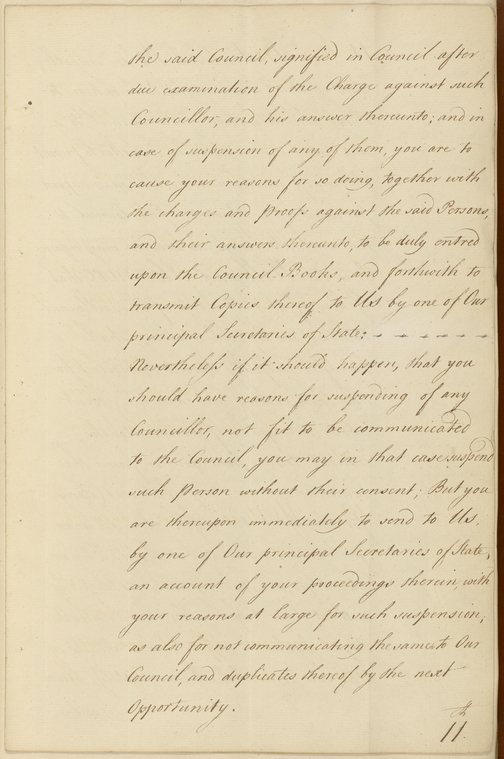 the said Council, signified in Council after
due examination of the Charge against such
Councillor, and his answer thereunto; and in
case of suspension of any of them, you are to
cause your reasons for so doing, together with
the charges and Proofs against the said Persons,
and their answers thereunto, to be duly entred
upon the Council Books, and forthwith to
transmit Copies thereof to Us by one of Our
principal Secretaries of State: - - - - - -
Nevertheless if it should happen, that you
should have reasons for suspending of any
Councillor, not fit to be communicated
to the Council, you may in that case suspend
such Person without their consent; But you
are thereupon immediately to send to Us,
by one of Our principal Secretaries of State,
an account of your proceedings therein, with
your reasons at large for such suspension;
as also for not communicating the same to Our
Council, and duplicates thereof by the next
Opportunity.
11th